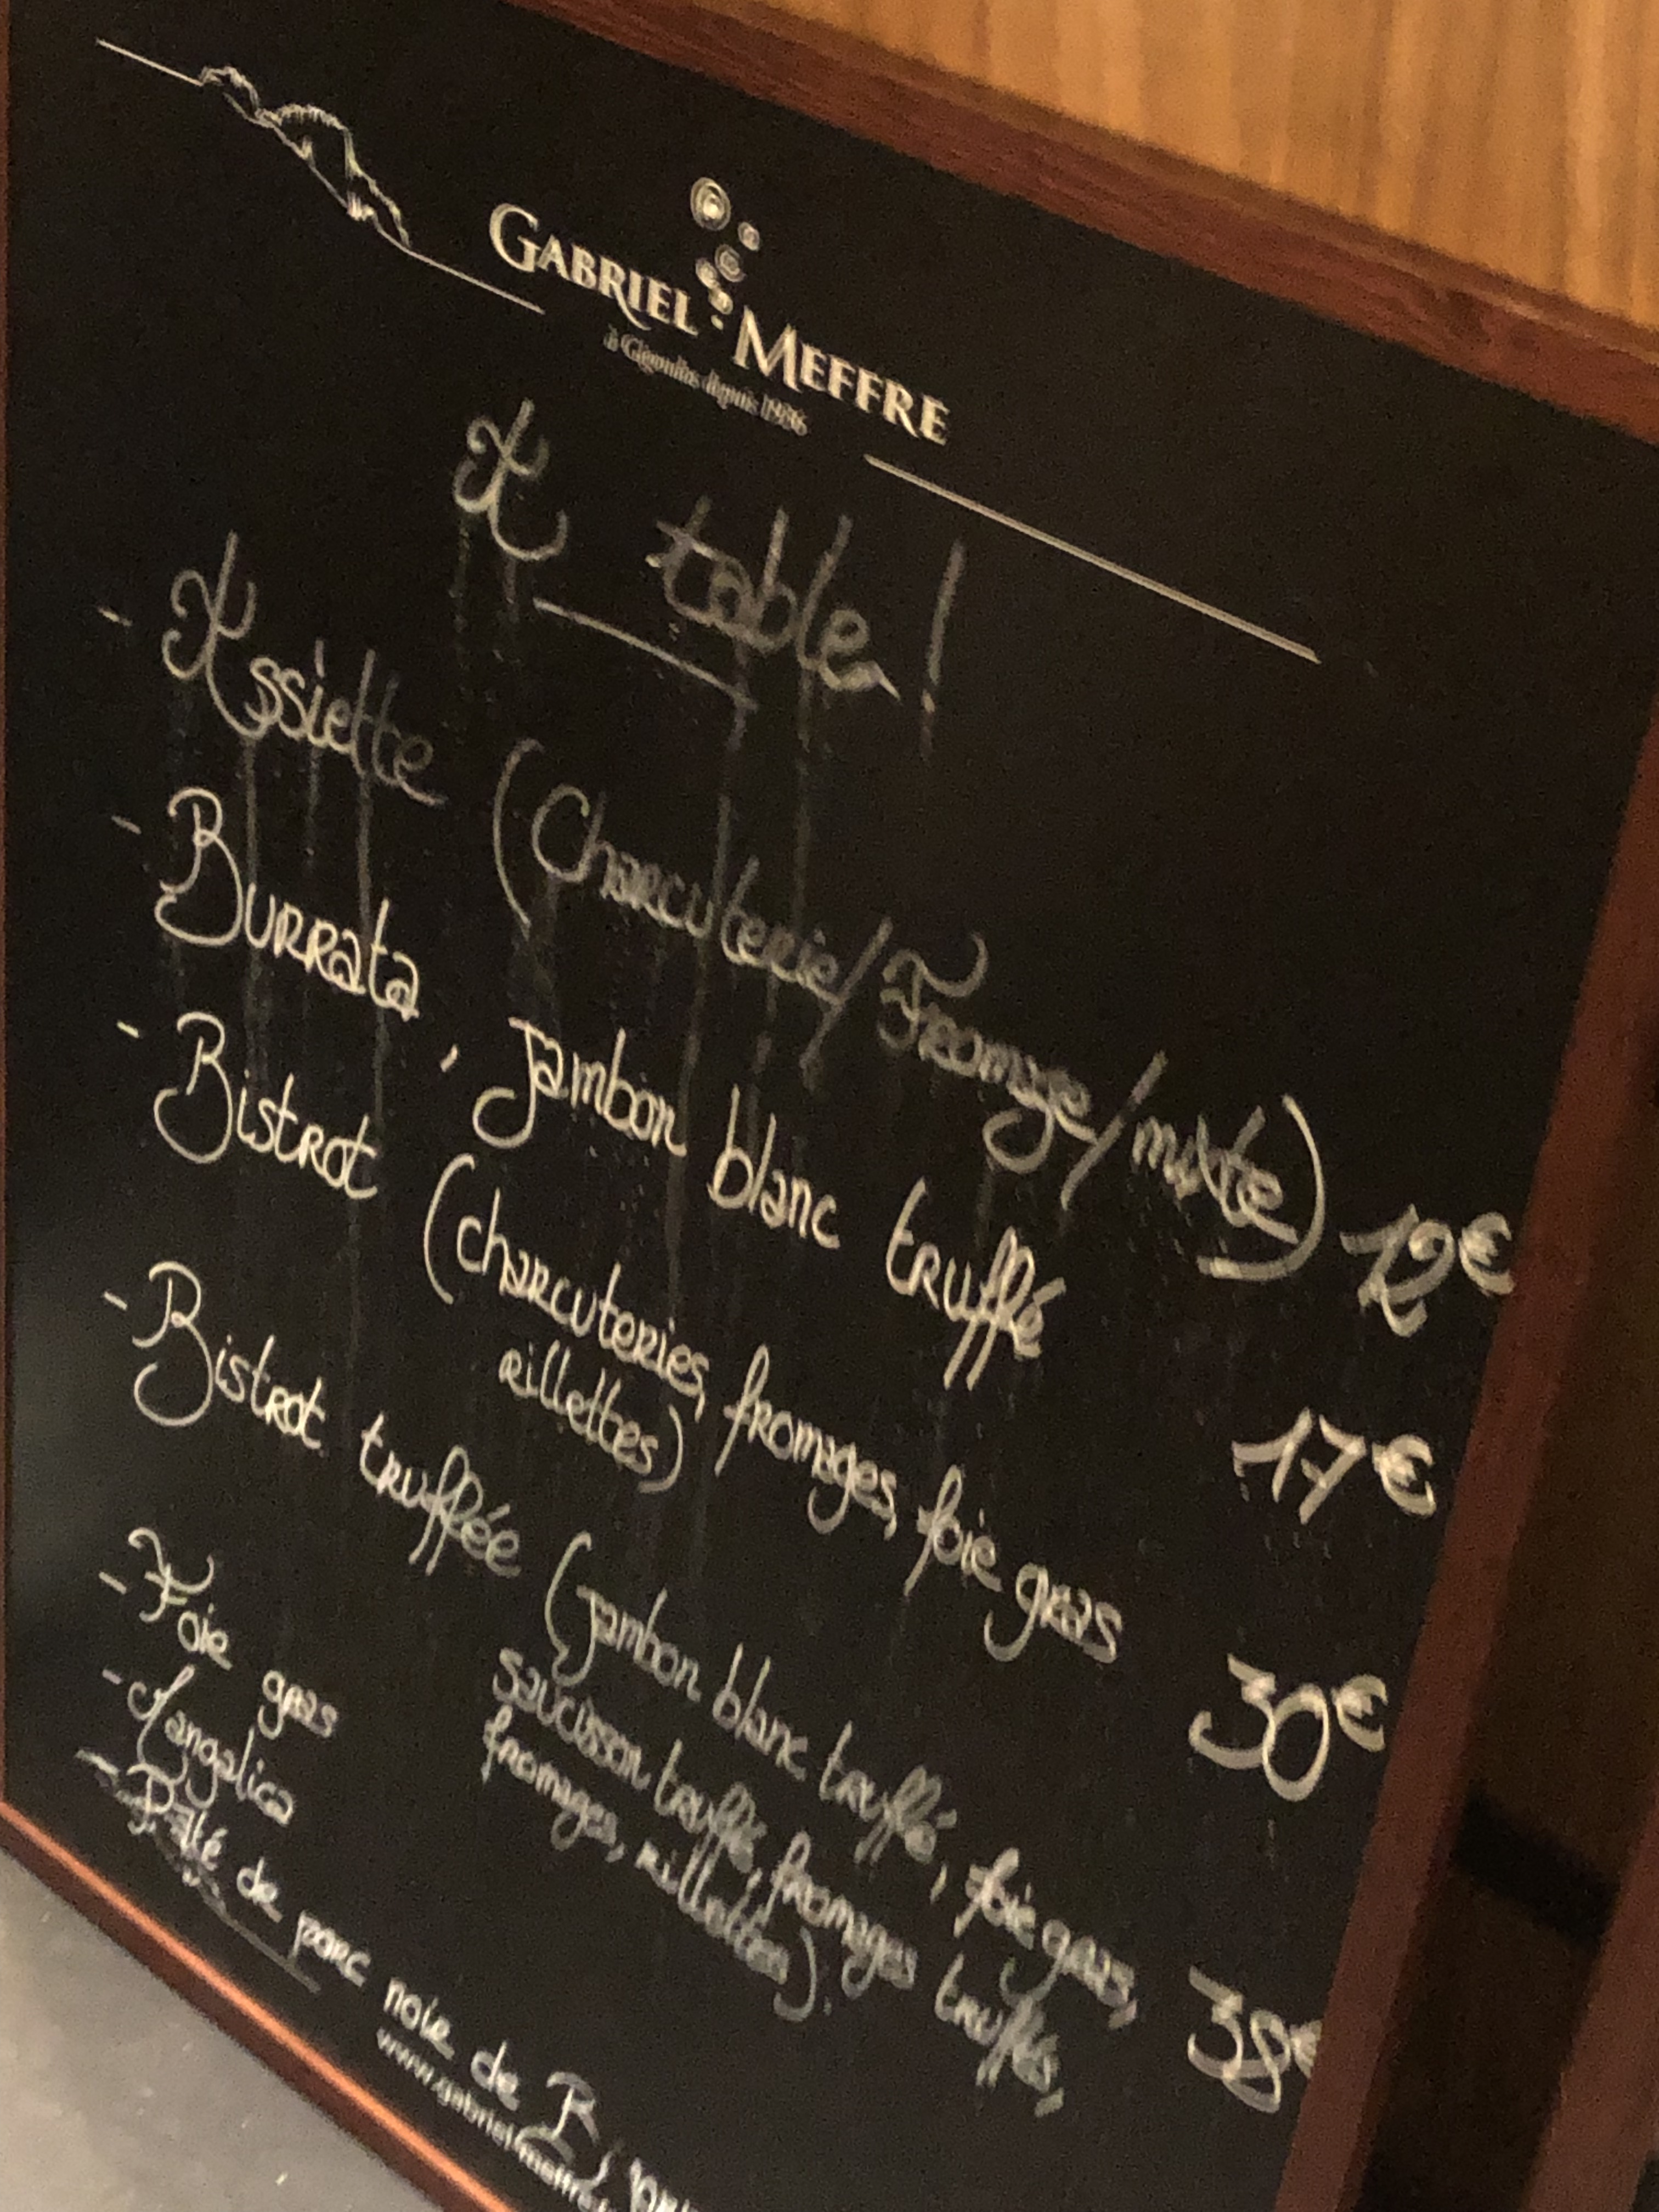 GABRIEL MEFFRE
à Gigondas depuis 1936
A table !
- Assiette (Charcuterie/Fromage/mixte) 12€
- Burrata, Jambon blanc truffé 17€
- Bistrot (charcuteries, fromages, foie gras 30€
rillettes)
- Bistrot truffée (jambon blanc truffé, foie gras, 38€
saucisson truffé, fromages truffés,
fromages, rillettes).
- Foie gras
- Mangalica
- Pâté de porc noir de B
www.gabriel-meffre